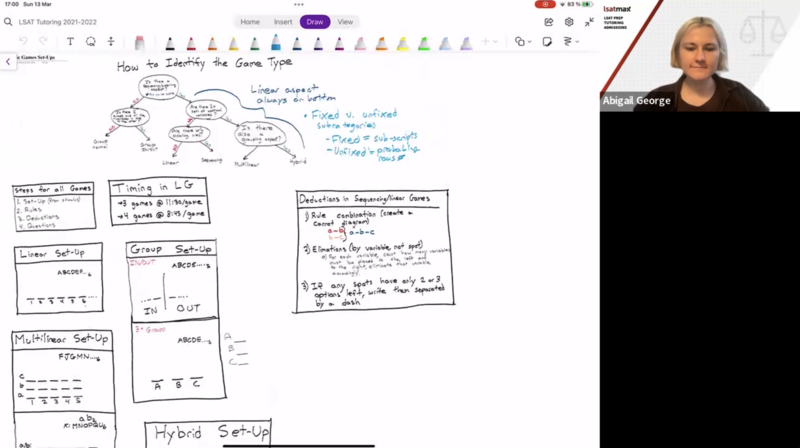 17:00 Sun 13 Mar
83 %
LSAT Tutoring 2021-2022
Hand
Insert
Draw
View
Games Set-Ups
How to Identify the Game Type
Linear aspect
always on bottom
• Fixed v. unfixed
subcategories
- Fixed = sub-scripts
- Unfixed = probably
rows
Group
normal
Group
In/Out
Linear
Sequencing
Multilinear
Hybrid
Is there
also a
grouping aspect?
Steps for all Games
1. Set-Up (from stimulus)
2. Rules
3. Deductions
4. Questions
Timing in LG
→ 3 games @ 11:30/game
→ 4 games @ 8:45/game
Deductions in Sequencing/linear Games
1) Rule combination (create a
carrot diagram)
a-b
b-c
a-b-c
by variable, not spot)
a) For each variable, count how many variables
must be placed to the left and
to the right, eliminate that variable
accordingly.
3) If any spots have only 2 or 3
options left, write them separated
by a dash
Linear Set-Up
ABCDEF...
1 2 3 4 5 6
Group Set-Up
IN/OUT
ABCDE...
IN OUT
3+ Group
ABCDE...
A B C
A
B
C
Multilinear Set-Up
FJGMN...
c
b
a
1 2 3 4 5
Hybrid Set-Up
lsatmax
LSAT PREP
TUTORING
ADMISSIONS
Abigail George